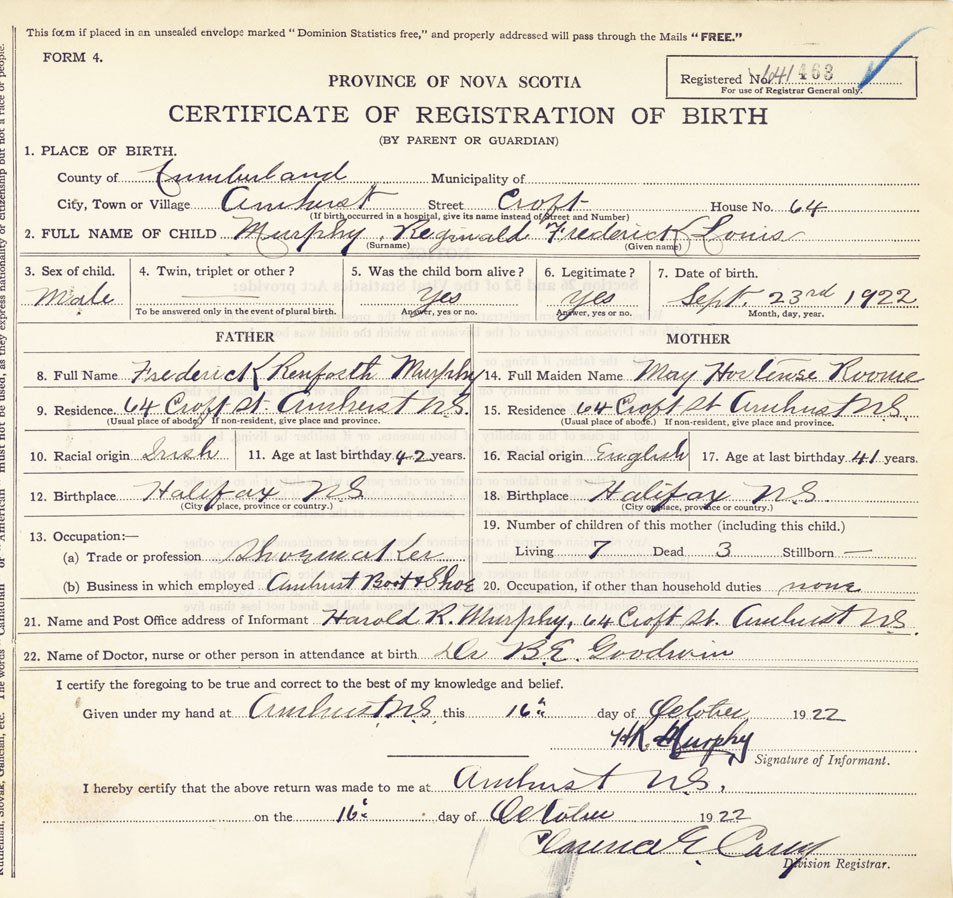 This form if placed in an unsealed envelope marked "Dominion Statistics free," and properly addressed will pass through the Mails "FREE."
FORM 4.
PROVINCE OF NOVA SCOTIA
Registered No. 641463
For use of Registrar General only.
CERTIFICATE OF REGISTRATION OF BIRTH
(BY PARENT OR GUARDIAN)
1. PLACE OF BIRTH.
County of Cumberland Municipality of
City, Town or Village Amherst Street Croft House No. 64
(If birth occurred in a hospital, give its name instead of Street and Number)
2. FULL NAME OF CHILD Murphy, Reginald Frederick Louis
(Surname) (Given name)
3. Sex of child. 4. Twin, triplet or other? 5. Was the child born alive? 6. Legitimate? 7. Date of birth.
Male Yes Yes Sept. 23rd 1922
To be answered only in the event of plural birth. Answer, yes or no. Answer, yes or no. Month, day, year.
FATHER MOTHER
8. Full Name Frederick Renforth Murphy 14. Full Maiden Name May Hortense Roome
9. Residence 64 Croft St. Amherst N.S. 15. Residence 64 Croft St Amherst N.S.
(Usual place of abode.) If non-resident, give place and province. (Usual place of abode.) If non-resident, give place and province.
10. Racial origin Irish 11. Age at last birthday 42 years. 16. Racial origin English 17. Age at last birthday 41 years.
12. Birthplace Halifax N.S. 18. Birthplace Halifax N.S.
(City or place, province or country.) (City or place, province or country.)
13. Occupation:— 19. Number of children of this mother (including this child.)
(a) Trade or profession Shoemaker Living 7 Dead 3 Stillborn —
(b) Business in which employed Amherst Boot & Shoe 20. Occupation, if other than household duties none
21. Name and Post Office address of Informant Harold R. Murphy, 64 Croft St. Amherst N.S.
22. Name of Doctor, nurse or other person in attendance at birth Dr B.E. Goodwin
I certify the foregoing to be true and correct to the best of my knowledge and belief.
Given under my hand at Amherst N.S. this 16" day of October 1922
H.R. Murphy
Signature of Informant.
I hereby certify that the above return was made to me at Amherst N.S.
on the 16" day of October 1922
Carey
Division Registrar.